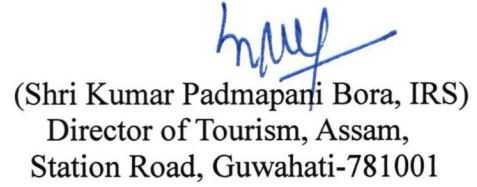 (Shri Kumar Padmapani Bora, IRS)
Director of Tourism, Assam,
Station Road, Guwahati-781001